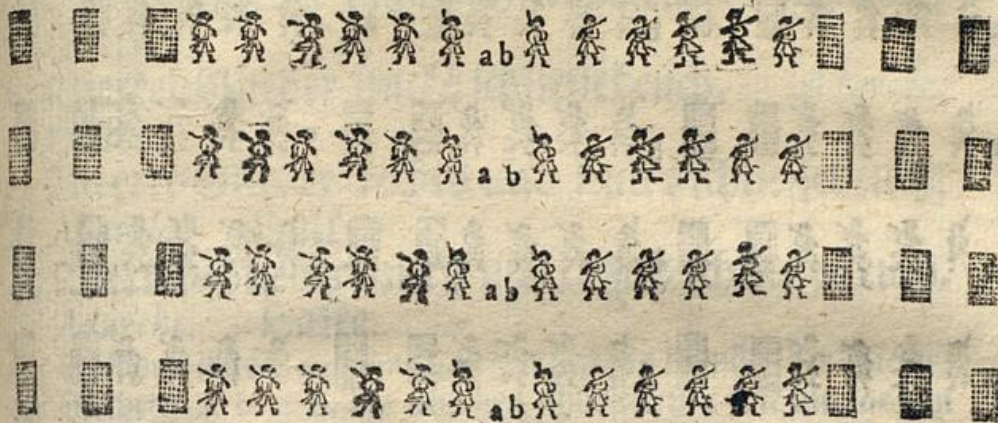 a b
a b
a b
a b